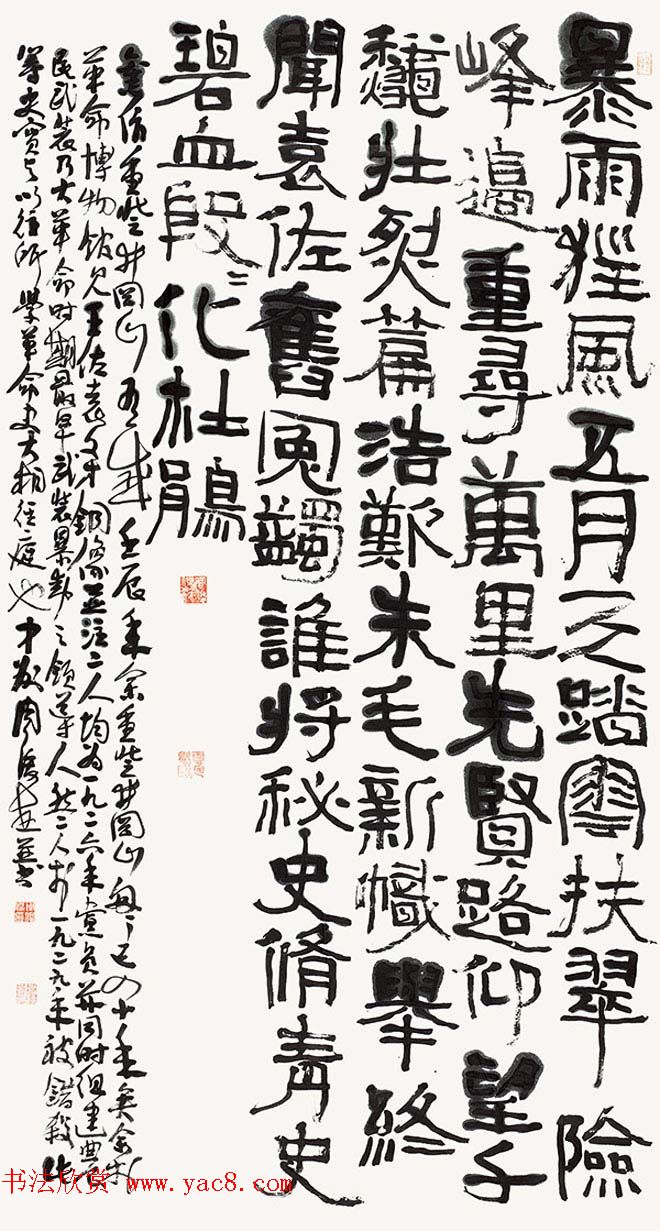 暴雨狂風五月天踏雲扶翠險
峰邊重尋萬里先賢路仰望千
龝壯烈篇浩歎朱毛新幟舉終
聞袁佐舊冤蠲誰將秘史脩青史
碧血段〻化杜鵑
重登井岡山有感壬辰年余重登井岡山四十年矣余於
革命博物館见王佐袁文才銅像並注二人均为一九二六年党员并同时组建农
民武装乃大革命时期最早武装暴動之领導人然二人於一九二九年被錯殺此
等史實与以往所學革命史大相径庭也周俊杰並书
书法欣赏 www.yac8.com